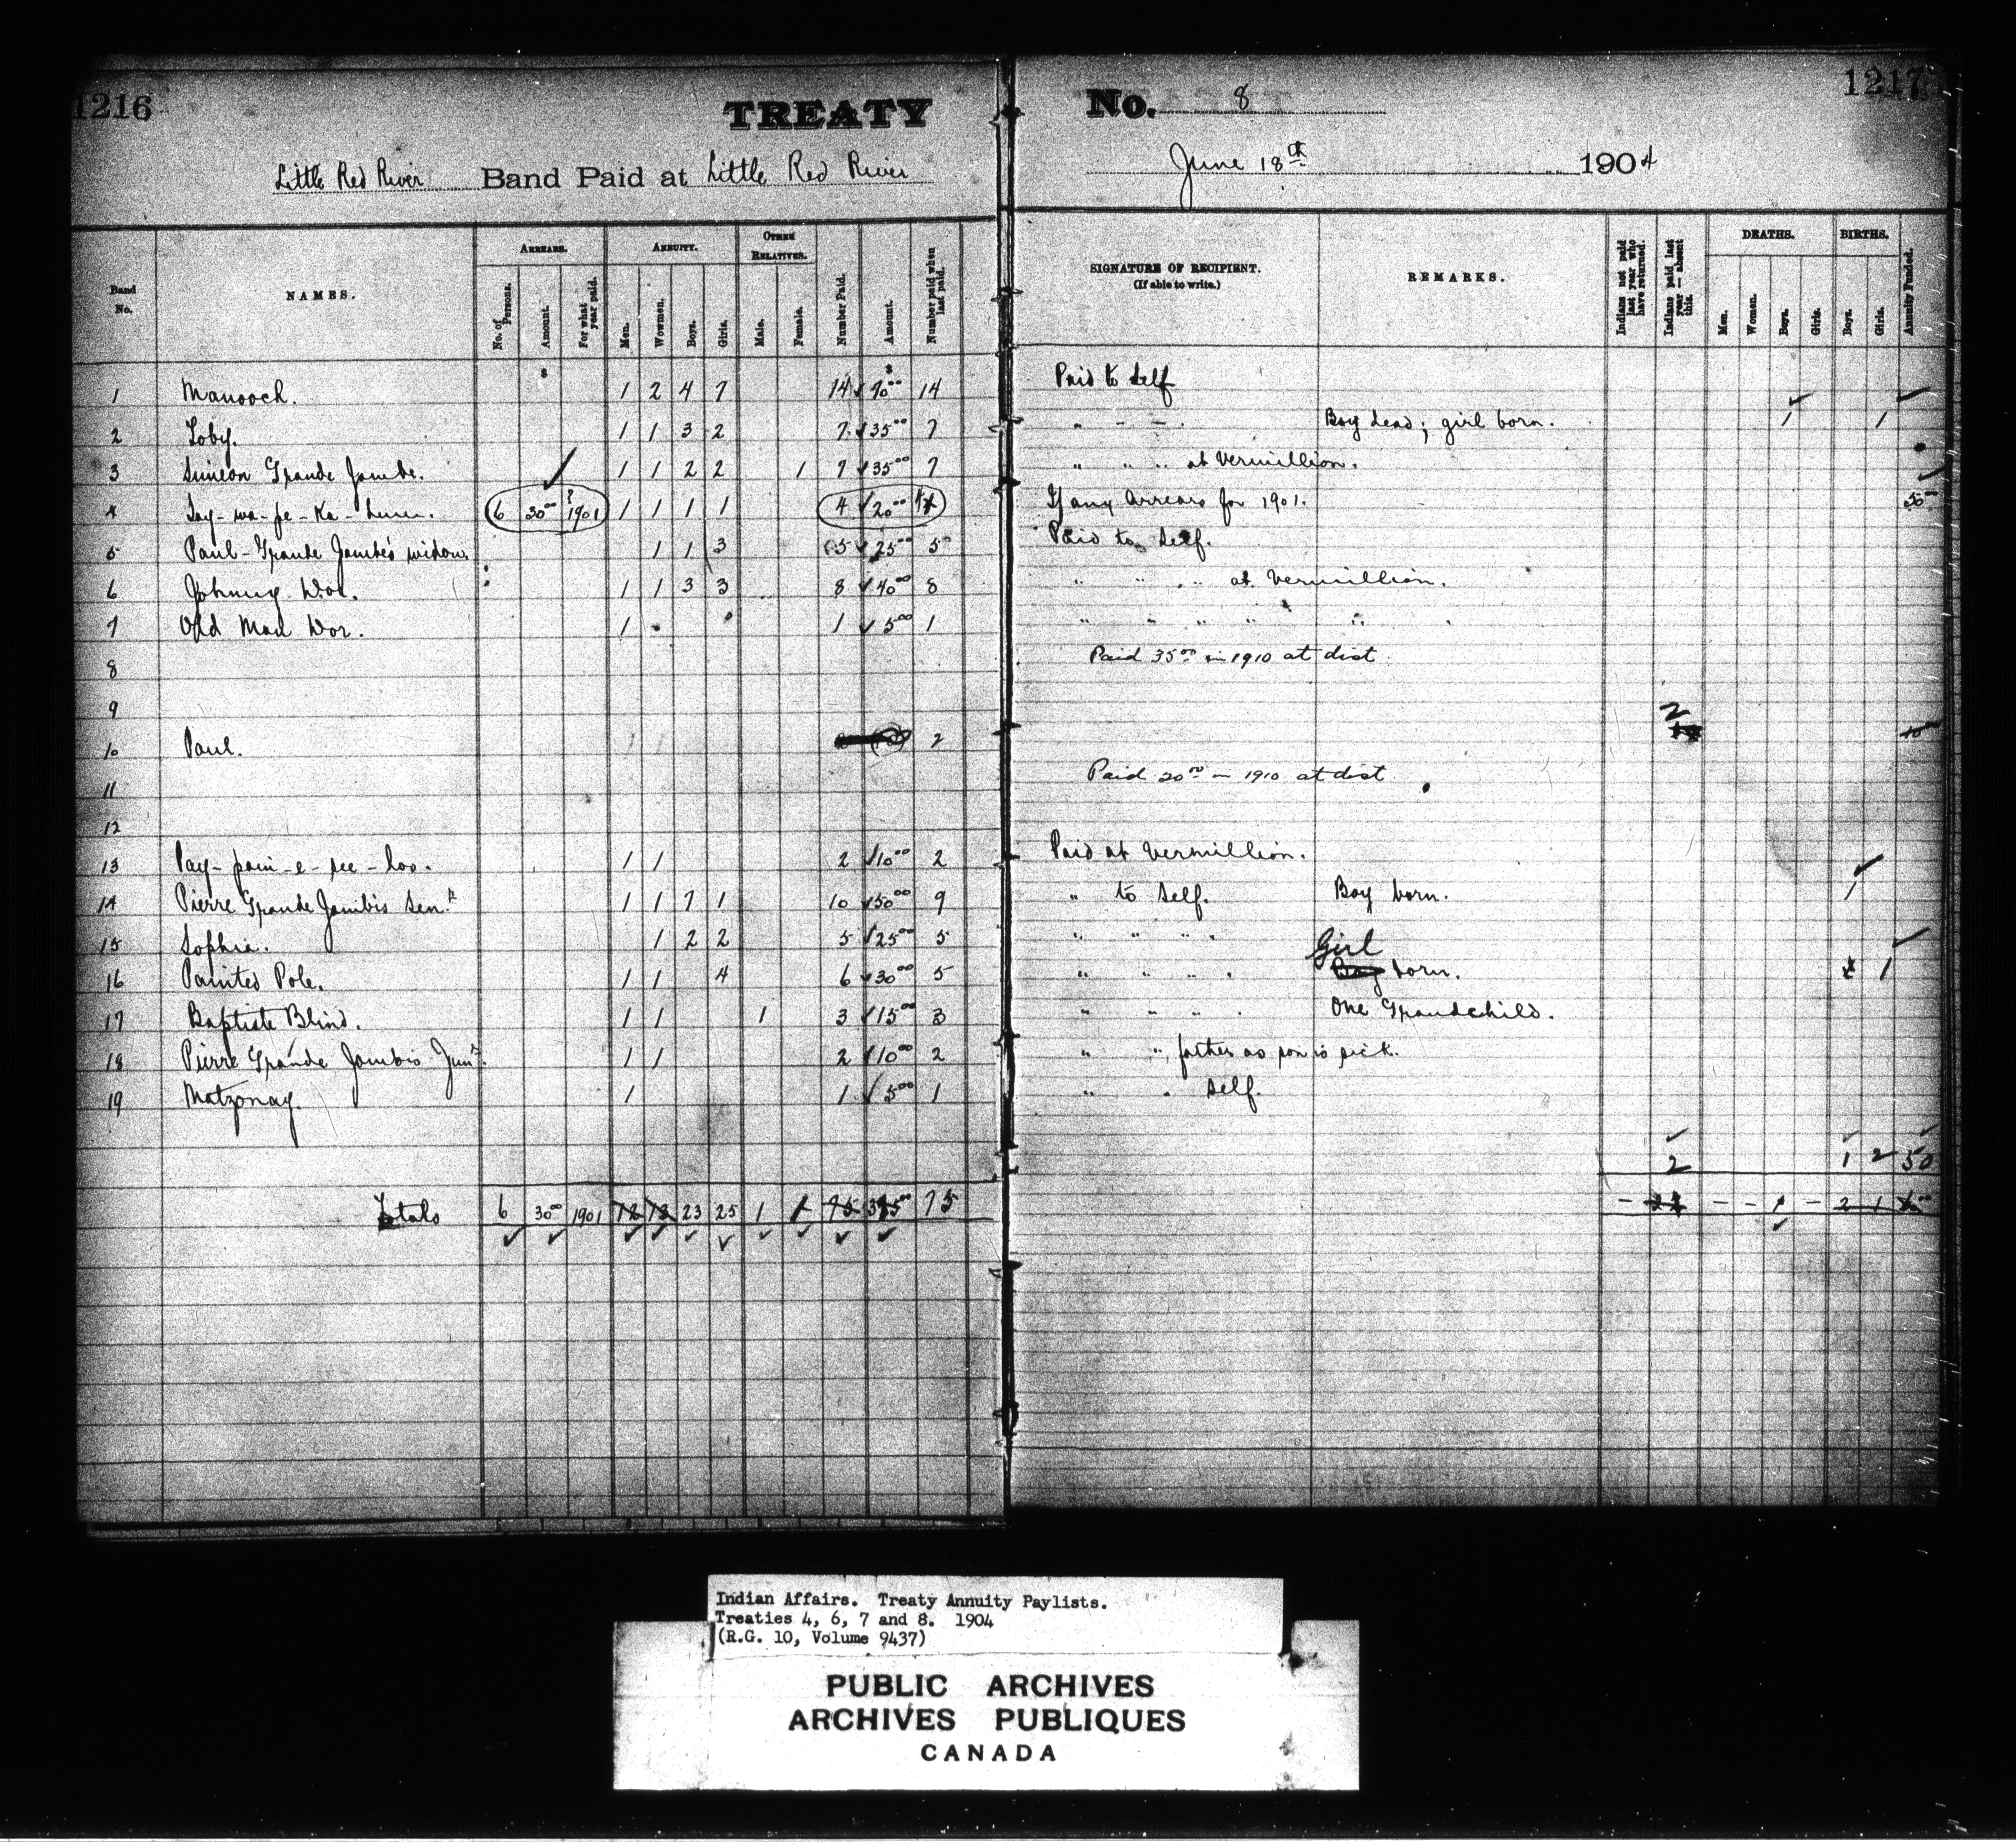 1216
TREATY
No. 8
1217
Little Red River Band Paid at Little Red River
June 18th 1904
Band No.
NAMES.
ARREARS.
No. of Persons.
Amount.
For what year paid.
ANNUITY.
Men.
Wowmen.
Boys.
Girls.
OTHER RELATIVES.
Male.
Female.
Number Paid.
Amount.
Number paid when last paid.
SIGNATURE OF RECIPIENT.
(If able to write.)
REMARKS.
Indians not paid last year who have returned.
Indians paid last year—absent this.
DEATHS.
Men.
Women.
Boys.
Girls.
BIRTHS.
Boys.
Girls.
Annuity Funded.
1 Manooch. 1 2 4 7 14 $70 00 14 Paid to Self
2 Toby. 1 1 3 2 7 35 00 7 " - - Boy dead; girl born. 1 1
3 Simeon Grande Jambe. 1 1 2 2 1 7 35 00 7 " " " at Vermillion.
4 6 30 00 ? 1901 1 1 1 1 4 20 00 4 If any Arrears for 1901. 50
5 Paul-Grande Jambe's widow. 1 1 3 5 25 00 5 Paid to Self.
6 Johnny Wor. 1 1 3 3 8 40 00 8 " " " at Vermillion.
7 Old Man Wor. 1 1 5 00 1 " " " " "
8 Paid 35 00 in 1910 at dist
9
10 Paul. 2 2
11 Paid 20 00 in 1910 at dist
12
13 1 1 2 10 00 2 Paid at Vermillion.
14 Pierre Grande Jambis Senr 1 1 7 1 10 50 00 9 " to Self. Boy born. 1
15 Sophia. 1 2 2 5 25 00 5 " " " "
16 Painted Pole. 1 1 4 6 30 00 5 " " " " Girl Boy born. 1
17 Baptiste Blind. 1 1 1 3 15 00 3 " " " " One Grandchild.
18 Pierre Grande Jambis Junr. 1 1 2 10 00 2 " " father as son is sick.
19 Matzonay. 1 1 5 00 1 " " Self.
2 1 2 50
Totals 6 30 00 1901 12 12 23 25 1 1 75 375 00 75 - - - 1 - 2 1
Indian Affairs. Treaty Annuity Paylists.
Treaties 4, 6, 7 and 8. 1904
(R.G. 10, Volume 9437)
PUBLIC ARCHIVES
ARCHIVES PUBLIQUES
CANADA